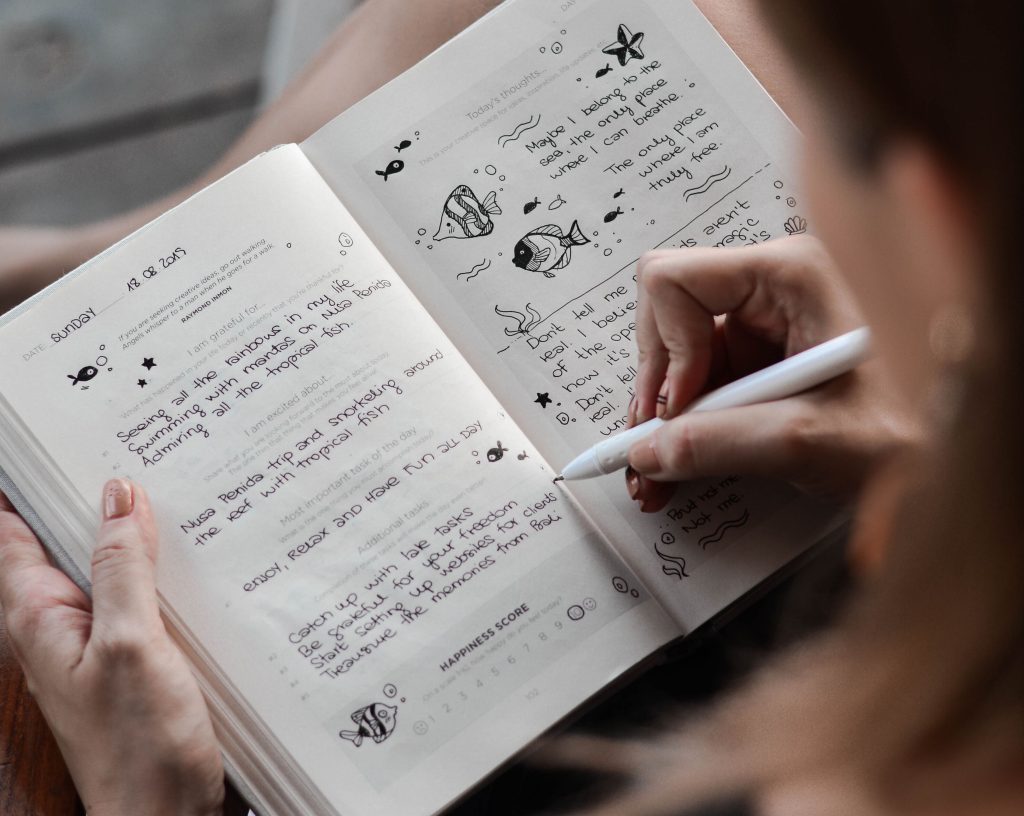 DATE SUNDAY 18.08.2019
If you are seeking creative ideas, go out walking.
Angels whisper to a man when he goes for a walk.
RAYMOND INMON
I am grateful for...
What has happened in your life today or recently that you're thankful for?
Seeing all the rainbows in my life
#2 Swimming with mantas on Nusa Penida
Admiring all the tropical fish.
I am excited about...
Nusa Penida trip and snorkeling around
the reef with tropical fish
Most important task of the day
enjoy, RELAX AND HAVE FUN ALL DAY
Additional tasks
Catch up with late tasks
#2 Be grateful for your freedom
#3 Start setting up websites for clients
#4 Treausure the memories from Bali
#5
HAPPINESS SCORE
On a scale 1-10, how happy do you feel today?
1 2 3 4 5 6 7 8 9
102
DAY
Today's thoughts...
This is your creative space for ideas, inspiration, life updates,
Maybe I belong to the
sea, the only place
where I can breathe.
The only place
where I am
truly free.
aren't
magic
Don't tell me
real. I believe
of the
how it's
Don't tell
real.
But not me.
Not me.